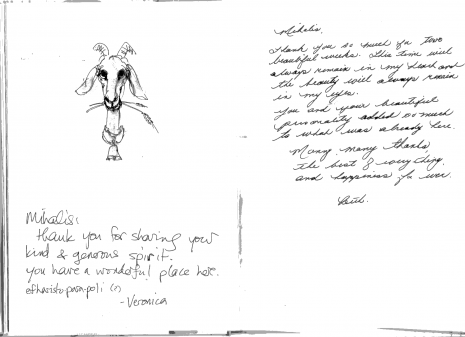 Mihalis:
thank you for sharing your
kind & generous spirit.
you have a wonderful place here.
efharisto para poli (?)
- Veronica
Mihalis,
Thank you so much for two
beautiful weeks. This time will
always remain in my heart and
the beauty will always remain
in my eyes.
You and your beautiful
personality added so much
to what was already here.
Many, many thanks,
the best of everything,
and happiness for ever.